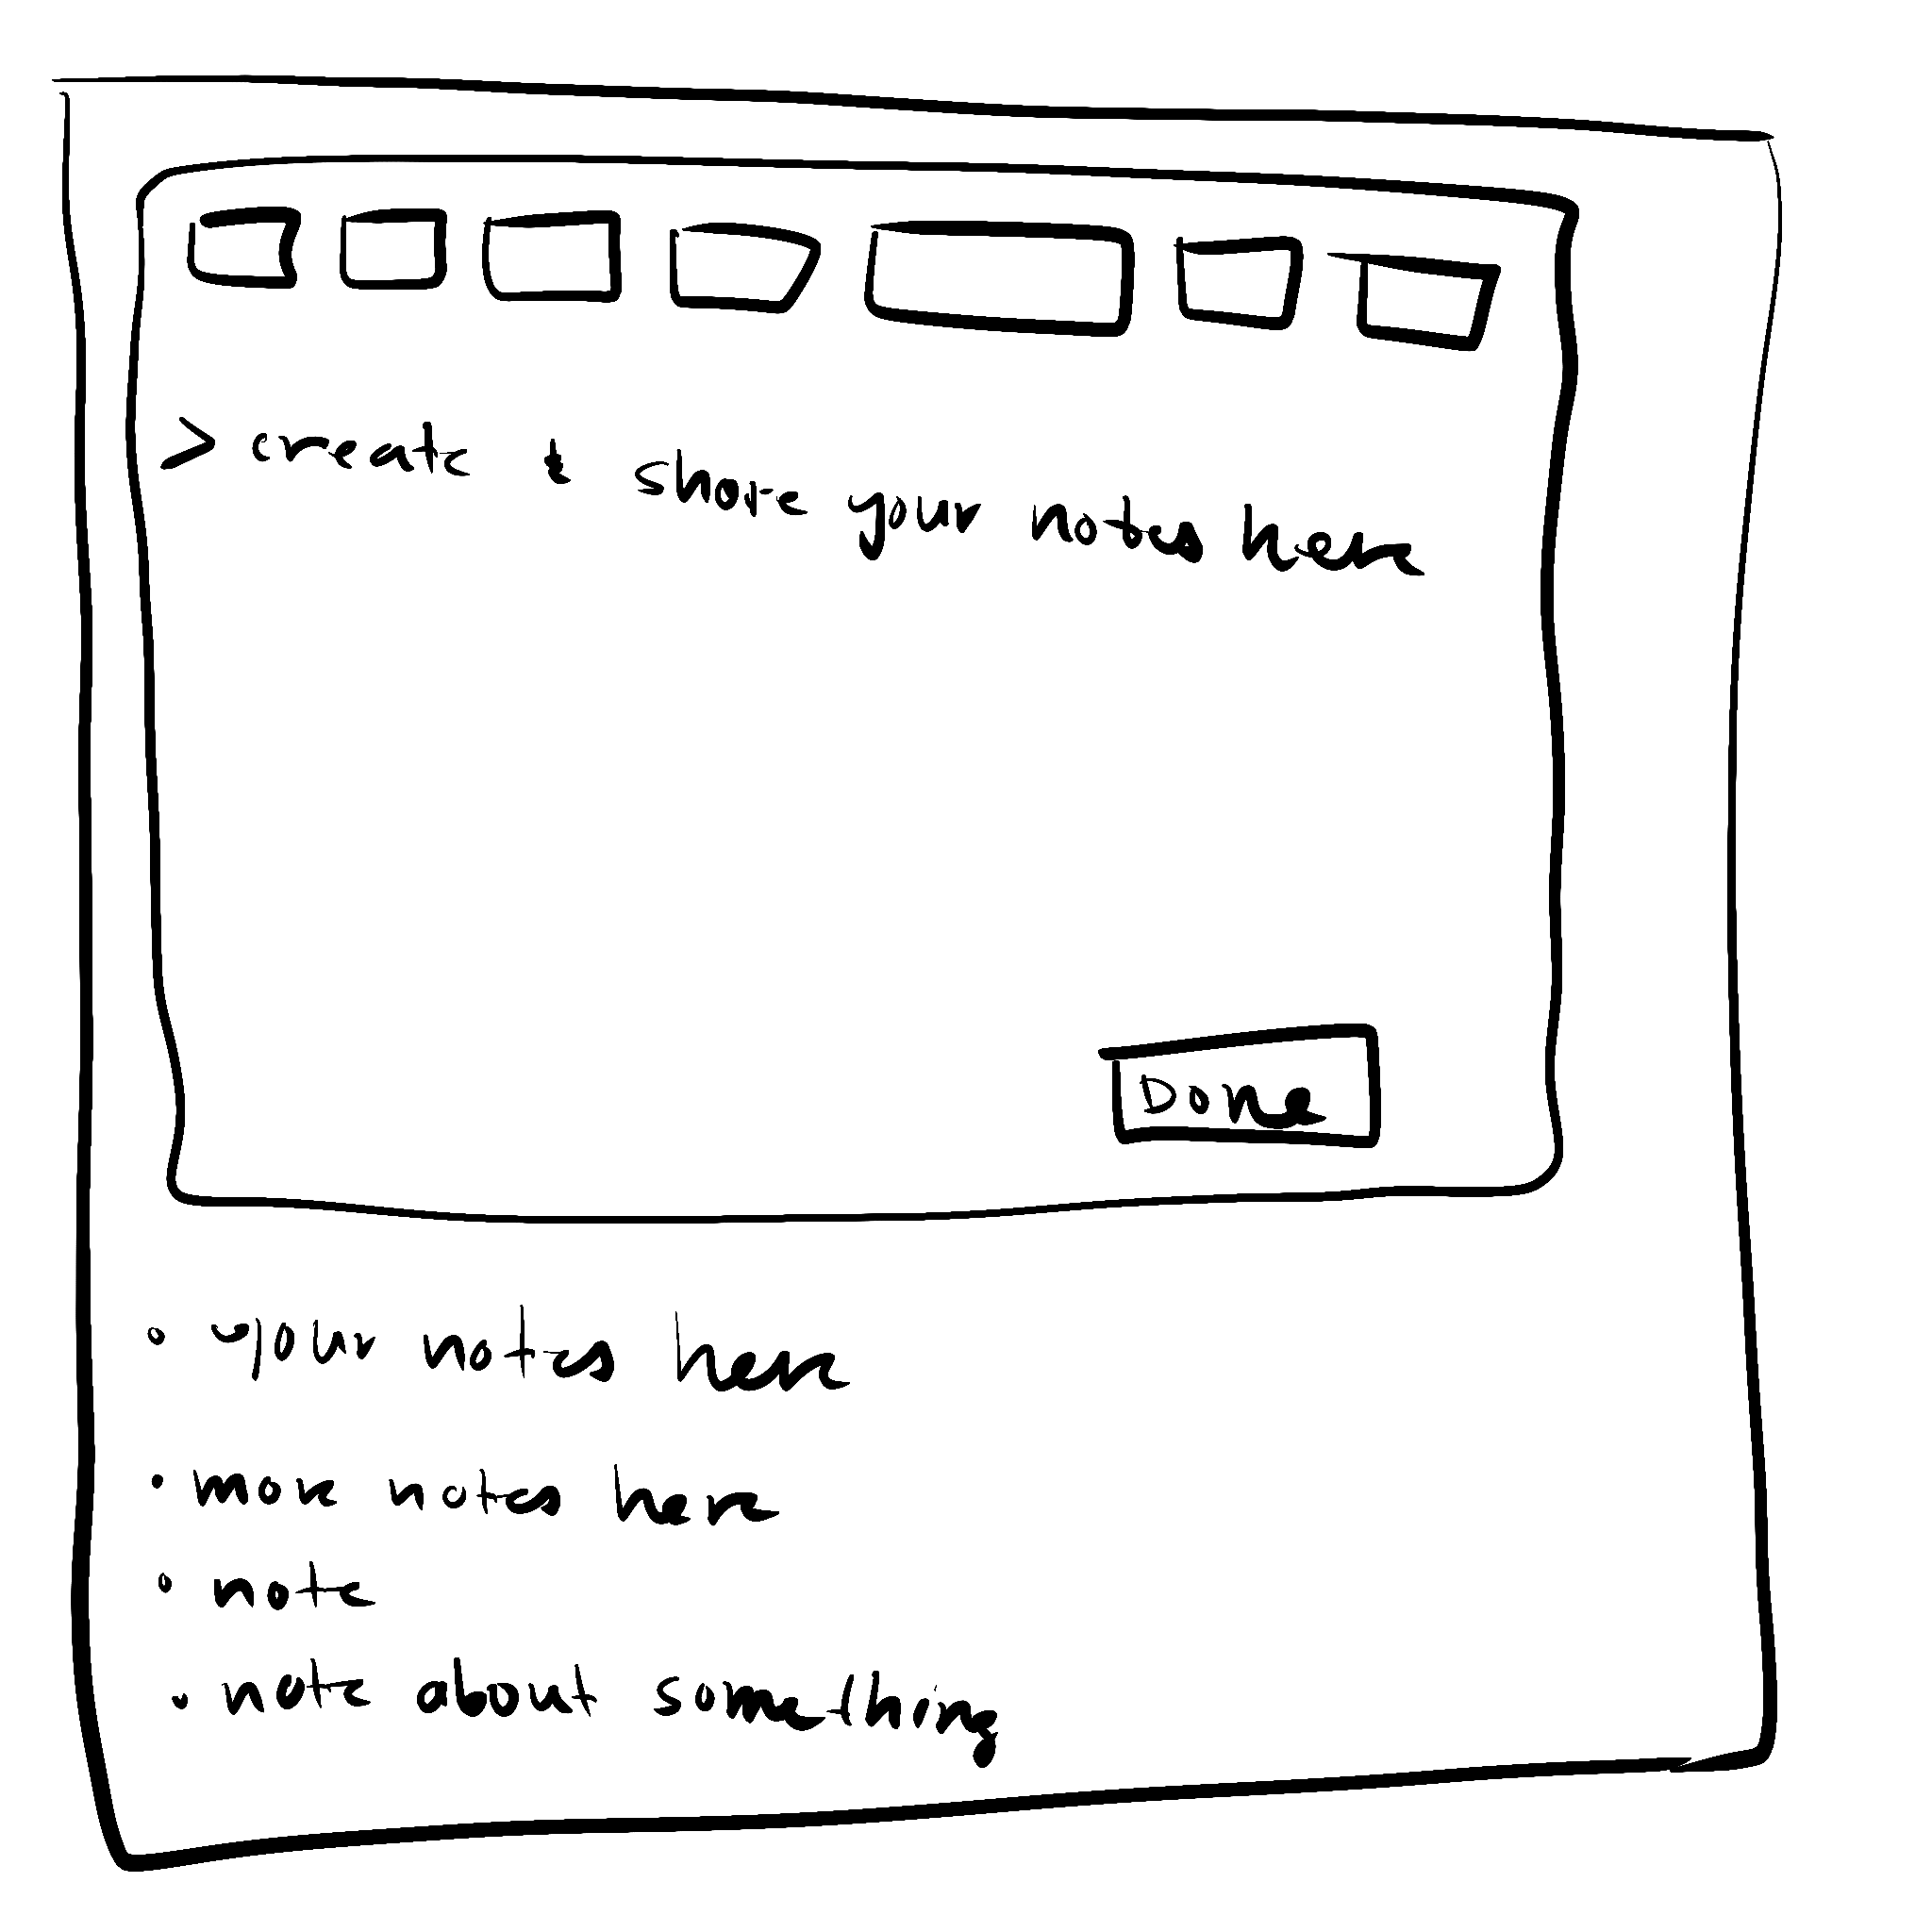 > create & share your notes here
Done
• your notes here
• more notes here
• note
• note about something